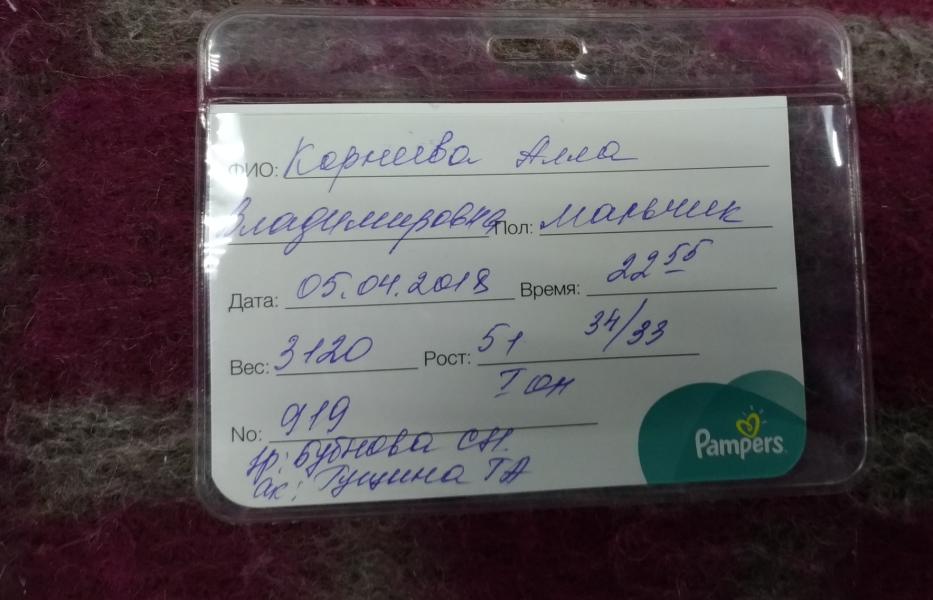 ФИО: Корнеева Алла
Владимировна Пол: мальчик
Дата: 05.04.2018 Время: 22 55
Вес: 3120 Рост: 51 34/33
I он
No: 919
Pampers
вр: Бубнова СН.
ак: Гущина ТА